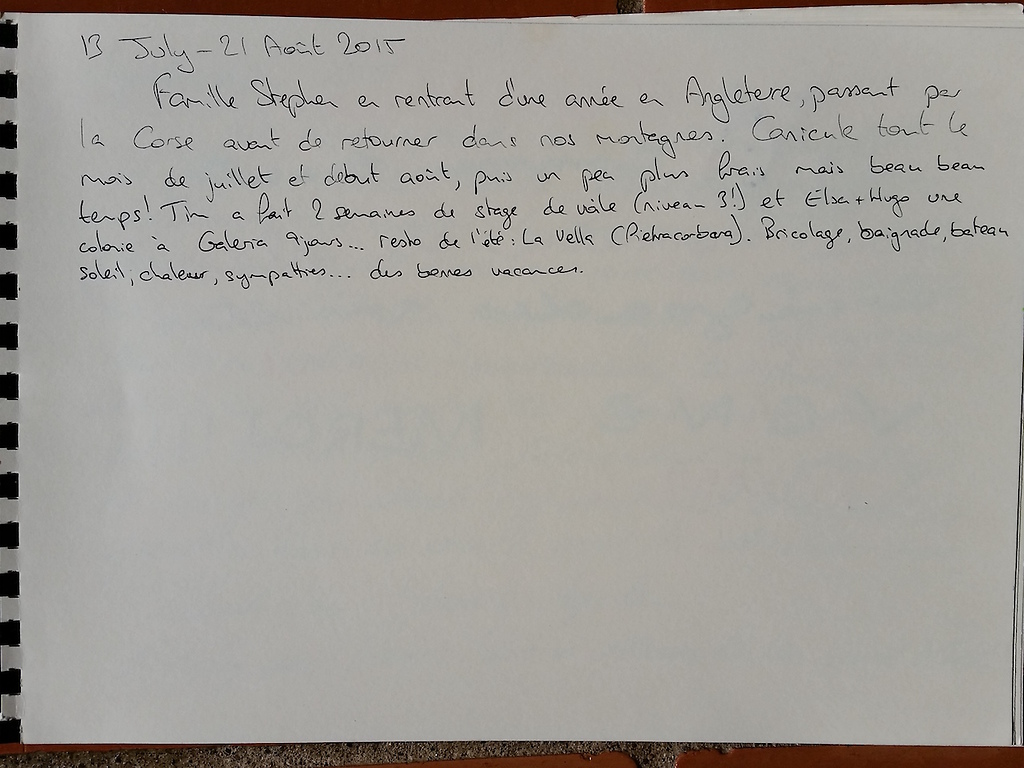 13 July - 21 Août 2015
Famille Stephen en rentrant d'une année en Angleterre, passant par
la Corse avant de retourner dans nos montagnes. Canicule tout le
mois de juillet et début août, puis un peu plus frais mais beau beau
temps! Tim a fait 2 semaines de stage de voile (niveau 3!) et Elsa + Hugo une
colonie à Galeria 9 jours... resto de l'été: La Vella (Pietracorbara). Bricolage, baignade, bateau
soleil, chaleur, sympattres... des bonnes vacances.